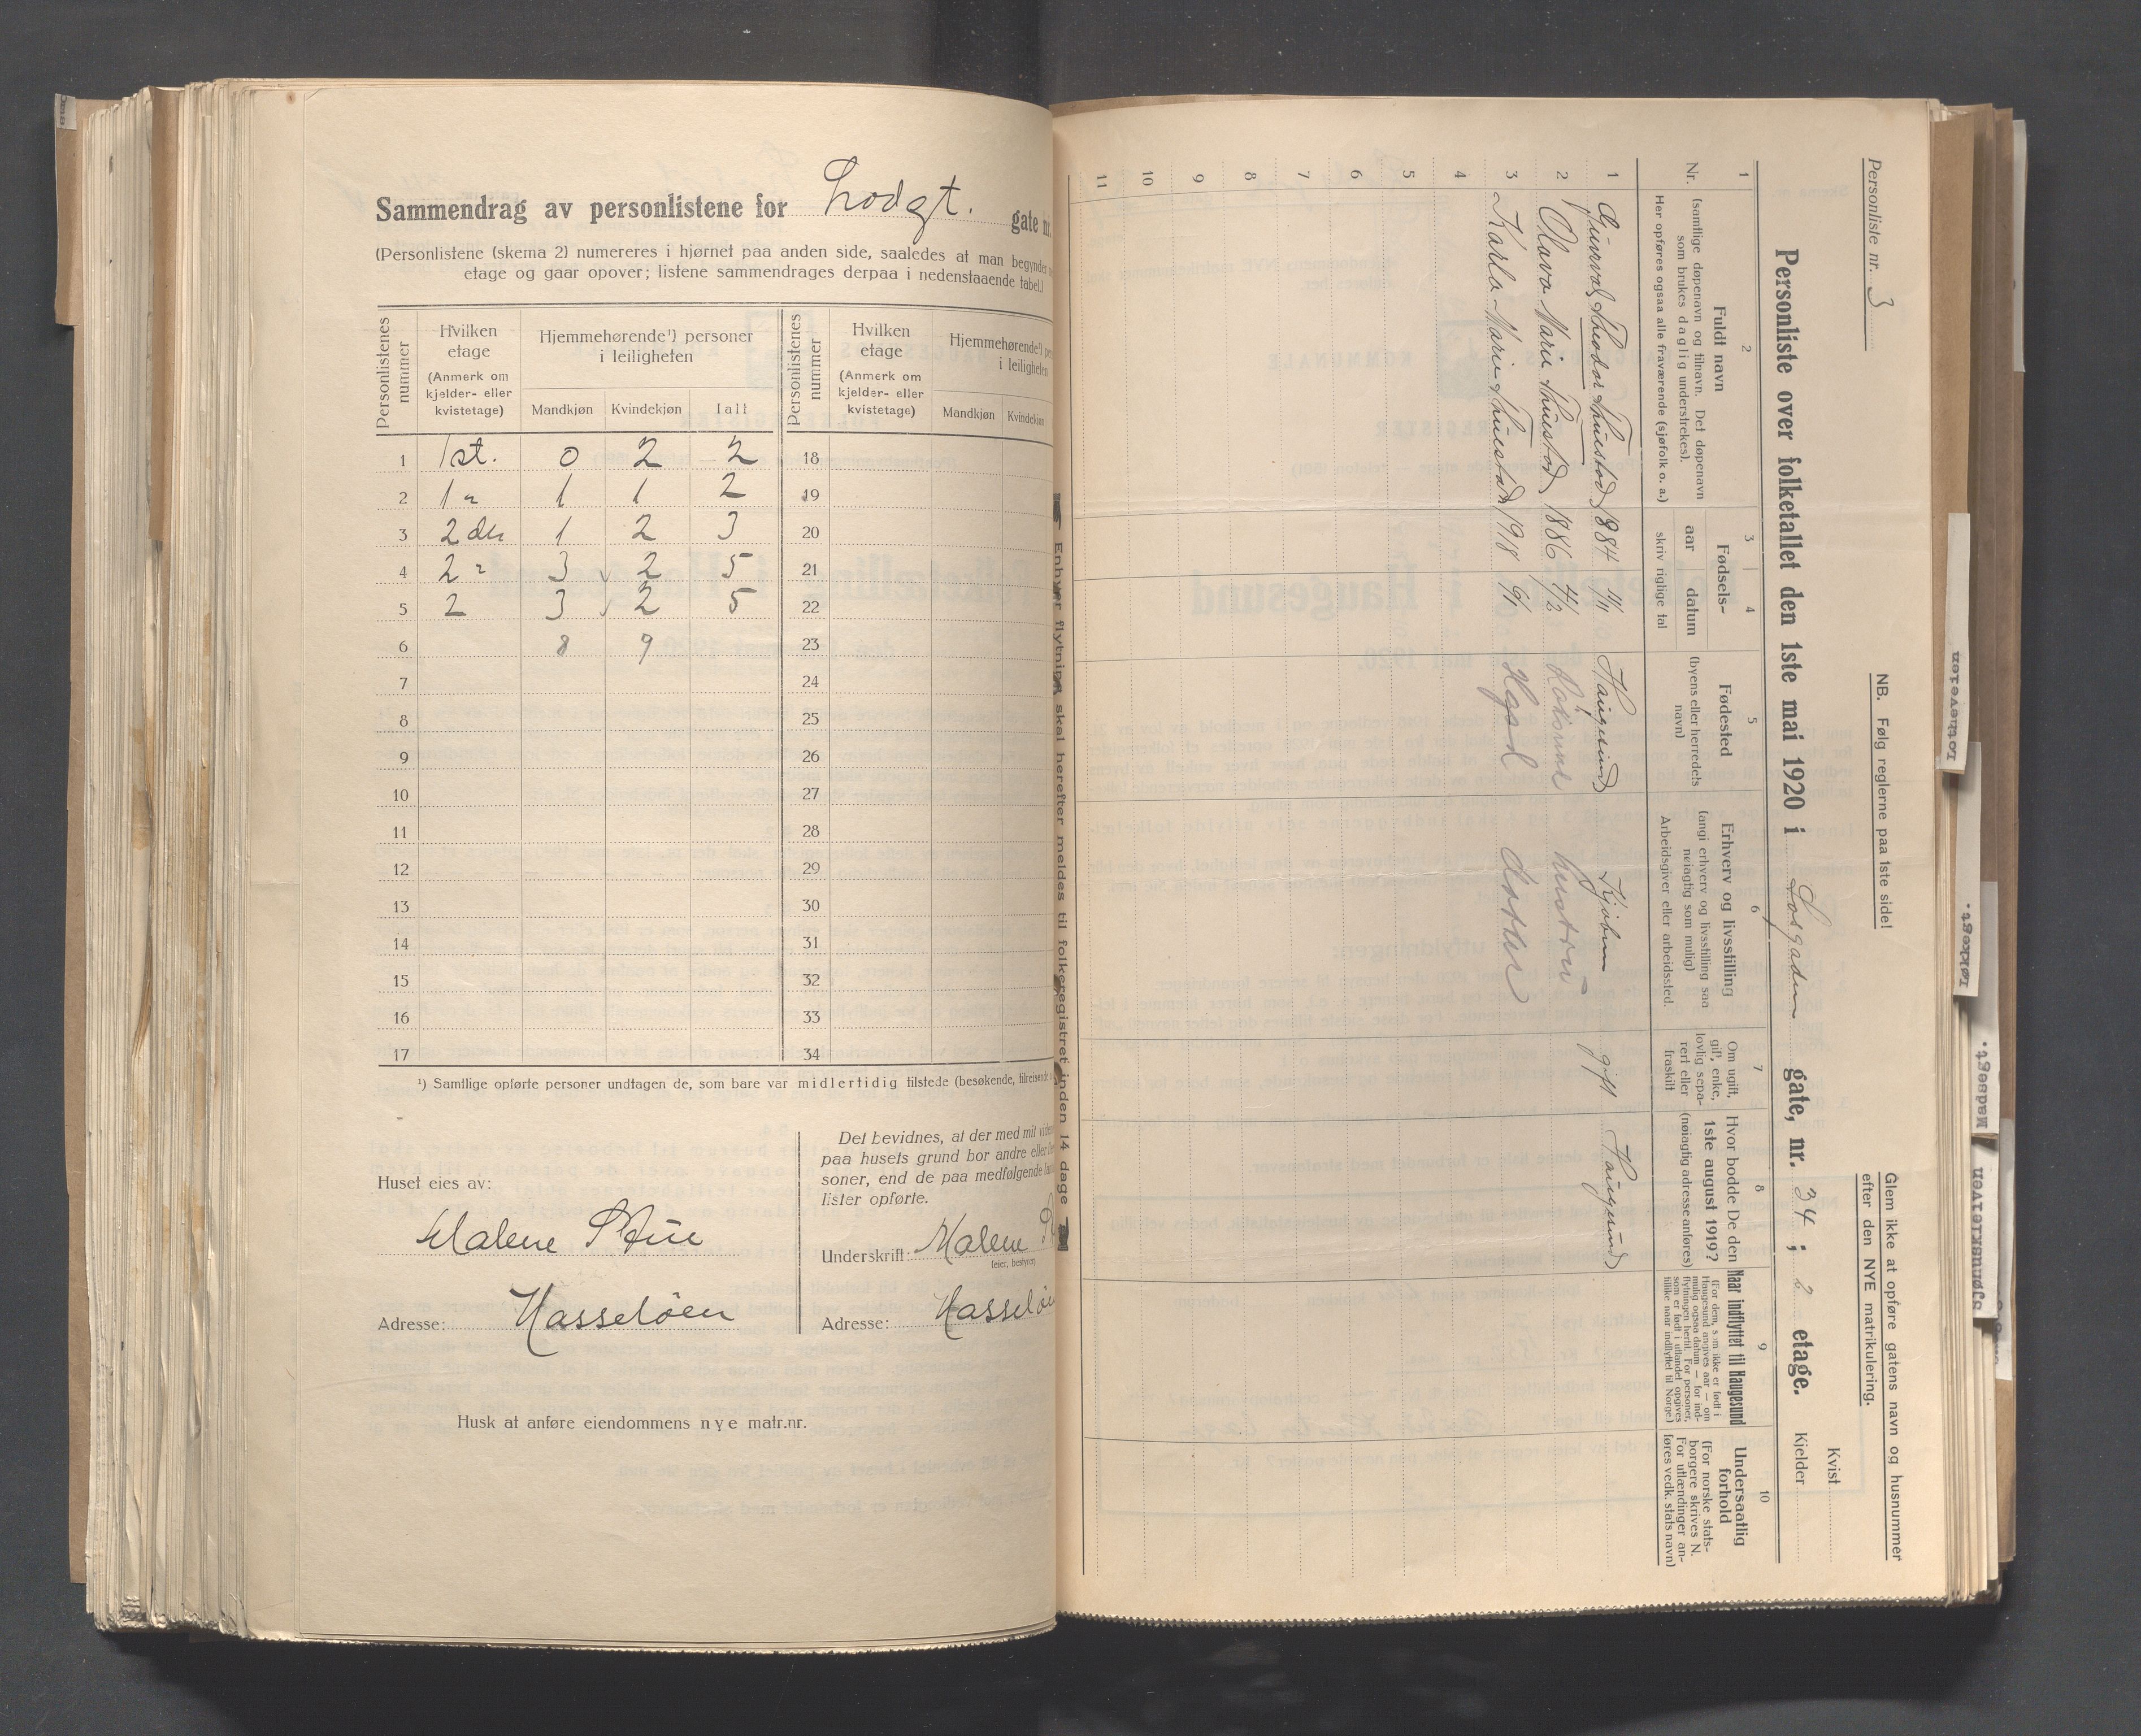 Sammendrag av personlistene for Lodgt. gate nr.
(Personlistene (skema 2) numereres i hjørnet paa anden side, saaledes at man begynder
etage og gaar opover; listene sammendrages derpaa i nedenstaaende tabel.)
Personlistenes nummer
Hvilken etage
(Anmerk om kjelder- eller kvistetage)
Hjemmehørende¹) personer i leiligheten
Mandkjøn Kvindekjøn Ialt
Personlistenes nummer
Hvilken etage
(Anmerk om kjelder- eller kvistetage)
Hjemmehørende¹)
i leiligheten
Mandkjøn Kvindekjøn
1 1st. 0 2 2 18
2 1 " 1 1 2 19
3 2den 1 2 3 20
4 2 " 3 2 5 21
5 2 3 2 5 22
6 8 9 23
7 24
8 25
9 26
10 27
11 28
12 29
13 30
14 31
15 32
16 33
17 34
¹) Samtlige opførte personer undtagen de, som bare var midlertidig tilstede (besøkende, tilreisende
Huset eies av:
Malene Stue
Adresse: Hasseløen
Det bevidnes, at der med mit
paa husets grund bor andre eller
soner, end de paa medfølgende
lister opførte.
Underskrift: Malene
(eier, bestyrer)
Adresse: Hasseløe
Husk at anføre eiendommens nye matr.nr.
Enhver flytning skal herefter meldes til folkeregistret inden 14 dage
Personliste nr. 3
NB. Følg reglerne paa 1ste side!
Glem ikke at opføre gatens navn og husnummer
efter den NYE matrikulering.
Kvist
Personliste over folketallet den 1ste mai 1920 i gate, nr. 34 ; 2 etage. Kjelder
1 2 3 4 5 6 7 8 9 10
Nr.
Fuldt navn
(samtlige døpenavn og tilnavn. Det døpenavn
som brukes daglig understrekes).
Her opføres ogsaa alle fraværende (sjøfolk o. a.)
Fødsels-
aar datum
skriv riglige tal
Fødested
(byens eller herredets navn)
Erhverv og livsstilling
(angi erhverv og livsstilling saa
nøiagtig som mulig)
Arbeidsgiver eller arbeidssted.
Om ugift, gift, enke, lovlig separert eller fraskilt
Hvor bodde De den
1ste august 1919?
(nøiagtig adresse anføres)
Naar indflyttet til Haugesund
(For dem, som ikke er født i
Haugesund angives aar — om
mulig ogsaa datum — for indflytningen
hertil. For personer,
som er født i utlandet opgives
tillike naar indflyttet til Norge)
Undersaatlig forhold
(For norske statsborgere
skrives N.
For utlændinger anføres
vedk. stats navn)
1 Gunvald Thodor Thuestad 1884 Haugesund gift Haugesund
2 Olava Marie Thuestad 1886 hustru
3 Karla-Marie Thuestad 1918 Hgsd datter
4
5
6
7
8
9
10
11
Lotheveien
Løkkegt.
Madsegt.